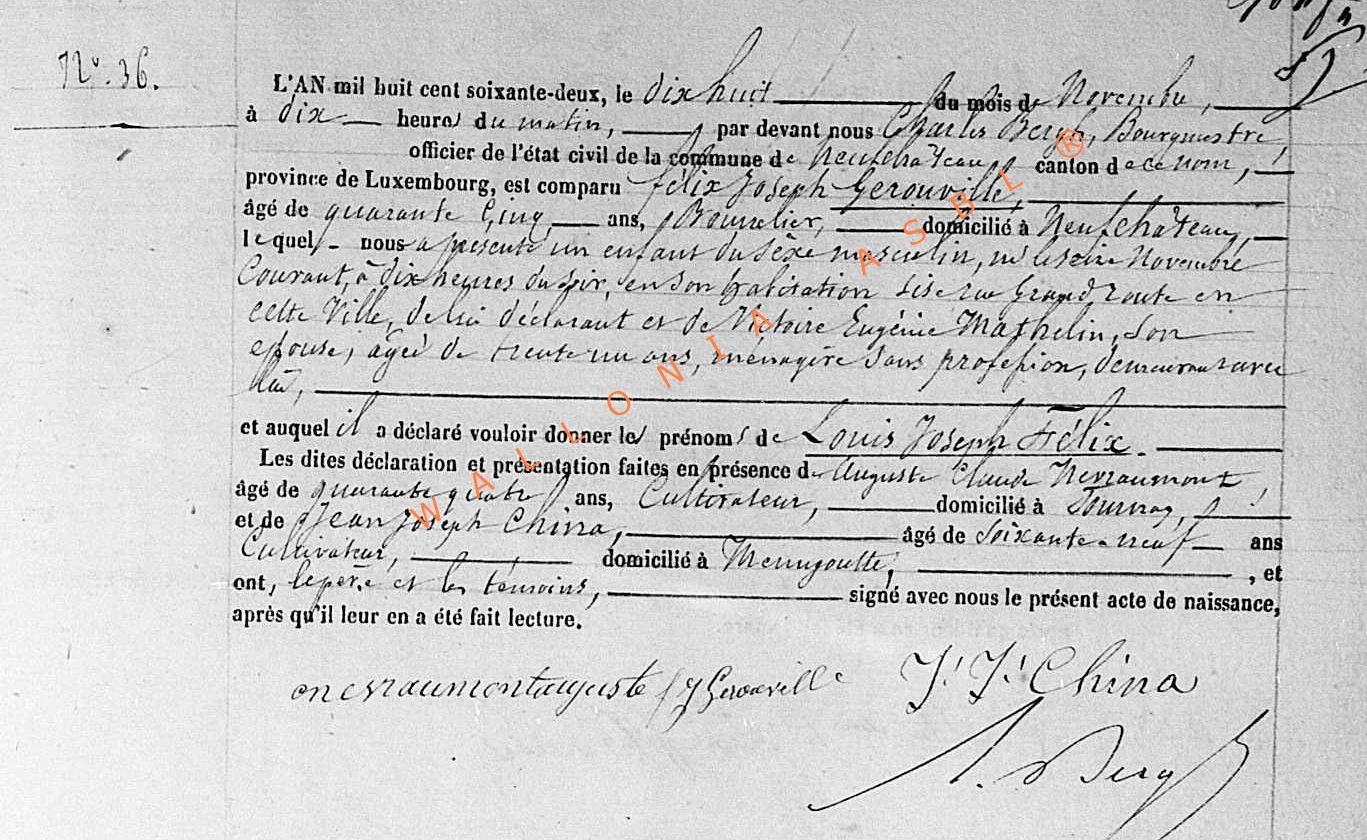 N°. 36.
L'AN mil huit cent soixante-deux, le dix huit du mois de Novembre,
à dix heures du matin, par devant nous Charles Bergh, Bourgmestre,
officier de l'état civil de la commune de Neufchâteau, canton de ce nom,
province de Luxembourg, est comparu Félix Joseph Gerouville,
âgé de quarante Cinq ans, Bourrelier, domicilié à Neufchâteau,
lequel nous a présenté un enfant du sèxe masculin, né le seize Novembre
Courant, à dix heures du soir, en son habitation sise rue Grand route en
cette Ville, de lui déclarant et de Victoire Eugénie Mathelin, son
épouse, agée de trente un ans, ménagère sans profession, demeurant avec
lui,
et auquel il a déclaré vouloir donner les prénoms de Louis Joseph Félix.
Les dites déclaration et présentation faites en présence de Auguste Claude Nerraumont,
âgé de quarante quatre ans, Cultivateur, domicilié à Tournay,
et de Jean Joseph China, âgé de Soixante neuf ans
Cultivateur, domicilié à Menugoutte, et
ont, le père et les témoins, signé avec nous le présent acte de naissance,
après qu'il leur en a été fait lecture.
auguste fJ Gerouville J. J. China
Bergh
WALLONIA ASBL ®